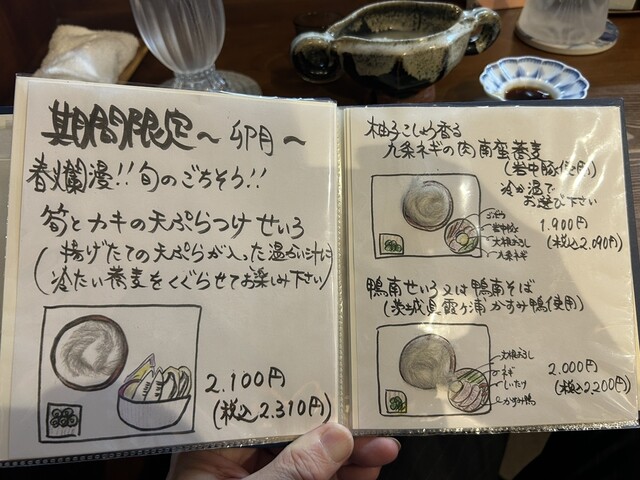 期間限定～卯月～
春爛漫!!旬のごちそう!!
筍とカキの天ぷらつけせいろ
(揚げたての天ぷらが入った温かい汁に
冷たい蕎麦をくぐらせてお楽しみ下さい)
2.100円
(税込2.310円)
柚子こしょう香る
九条ネギの肉南蛮蕎麦
(岩中豚使用)
冷か温で
お選び下さい
岩中豚
大根おろし
九条ネギ
1.900円
(税込2.090円)
鴨南せいろ又は鴨南そば
(茨城県霞ヶ浦かすみ鴨使用)
大根おろし
ネギ
しいたけ
かすみ鴨
2.000円
(税込2.200円)